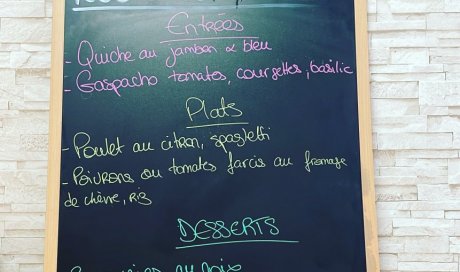 Entrées
- Quiche au jambon & bleu
- Gaspacho tomates, courgettes, basilic
Plats
- Poulet au citron, spaghetti
- Poivrons ou tomates farcis au fromage
de chèvre, riz
DESSERTS